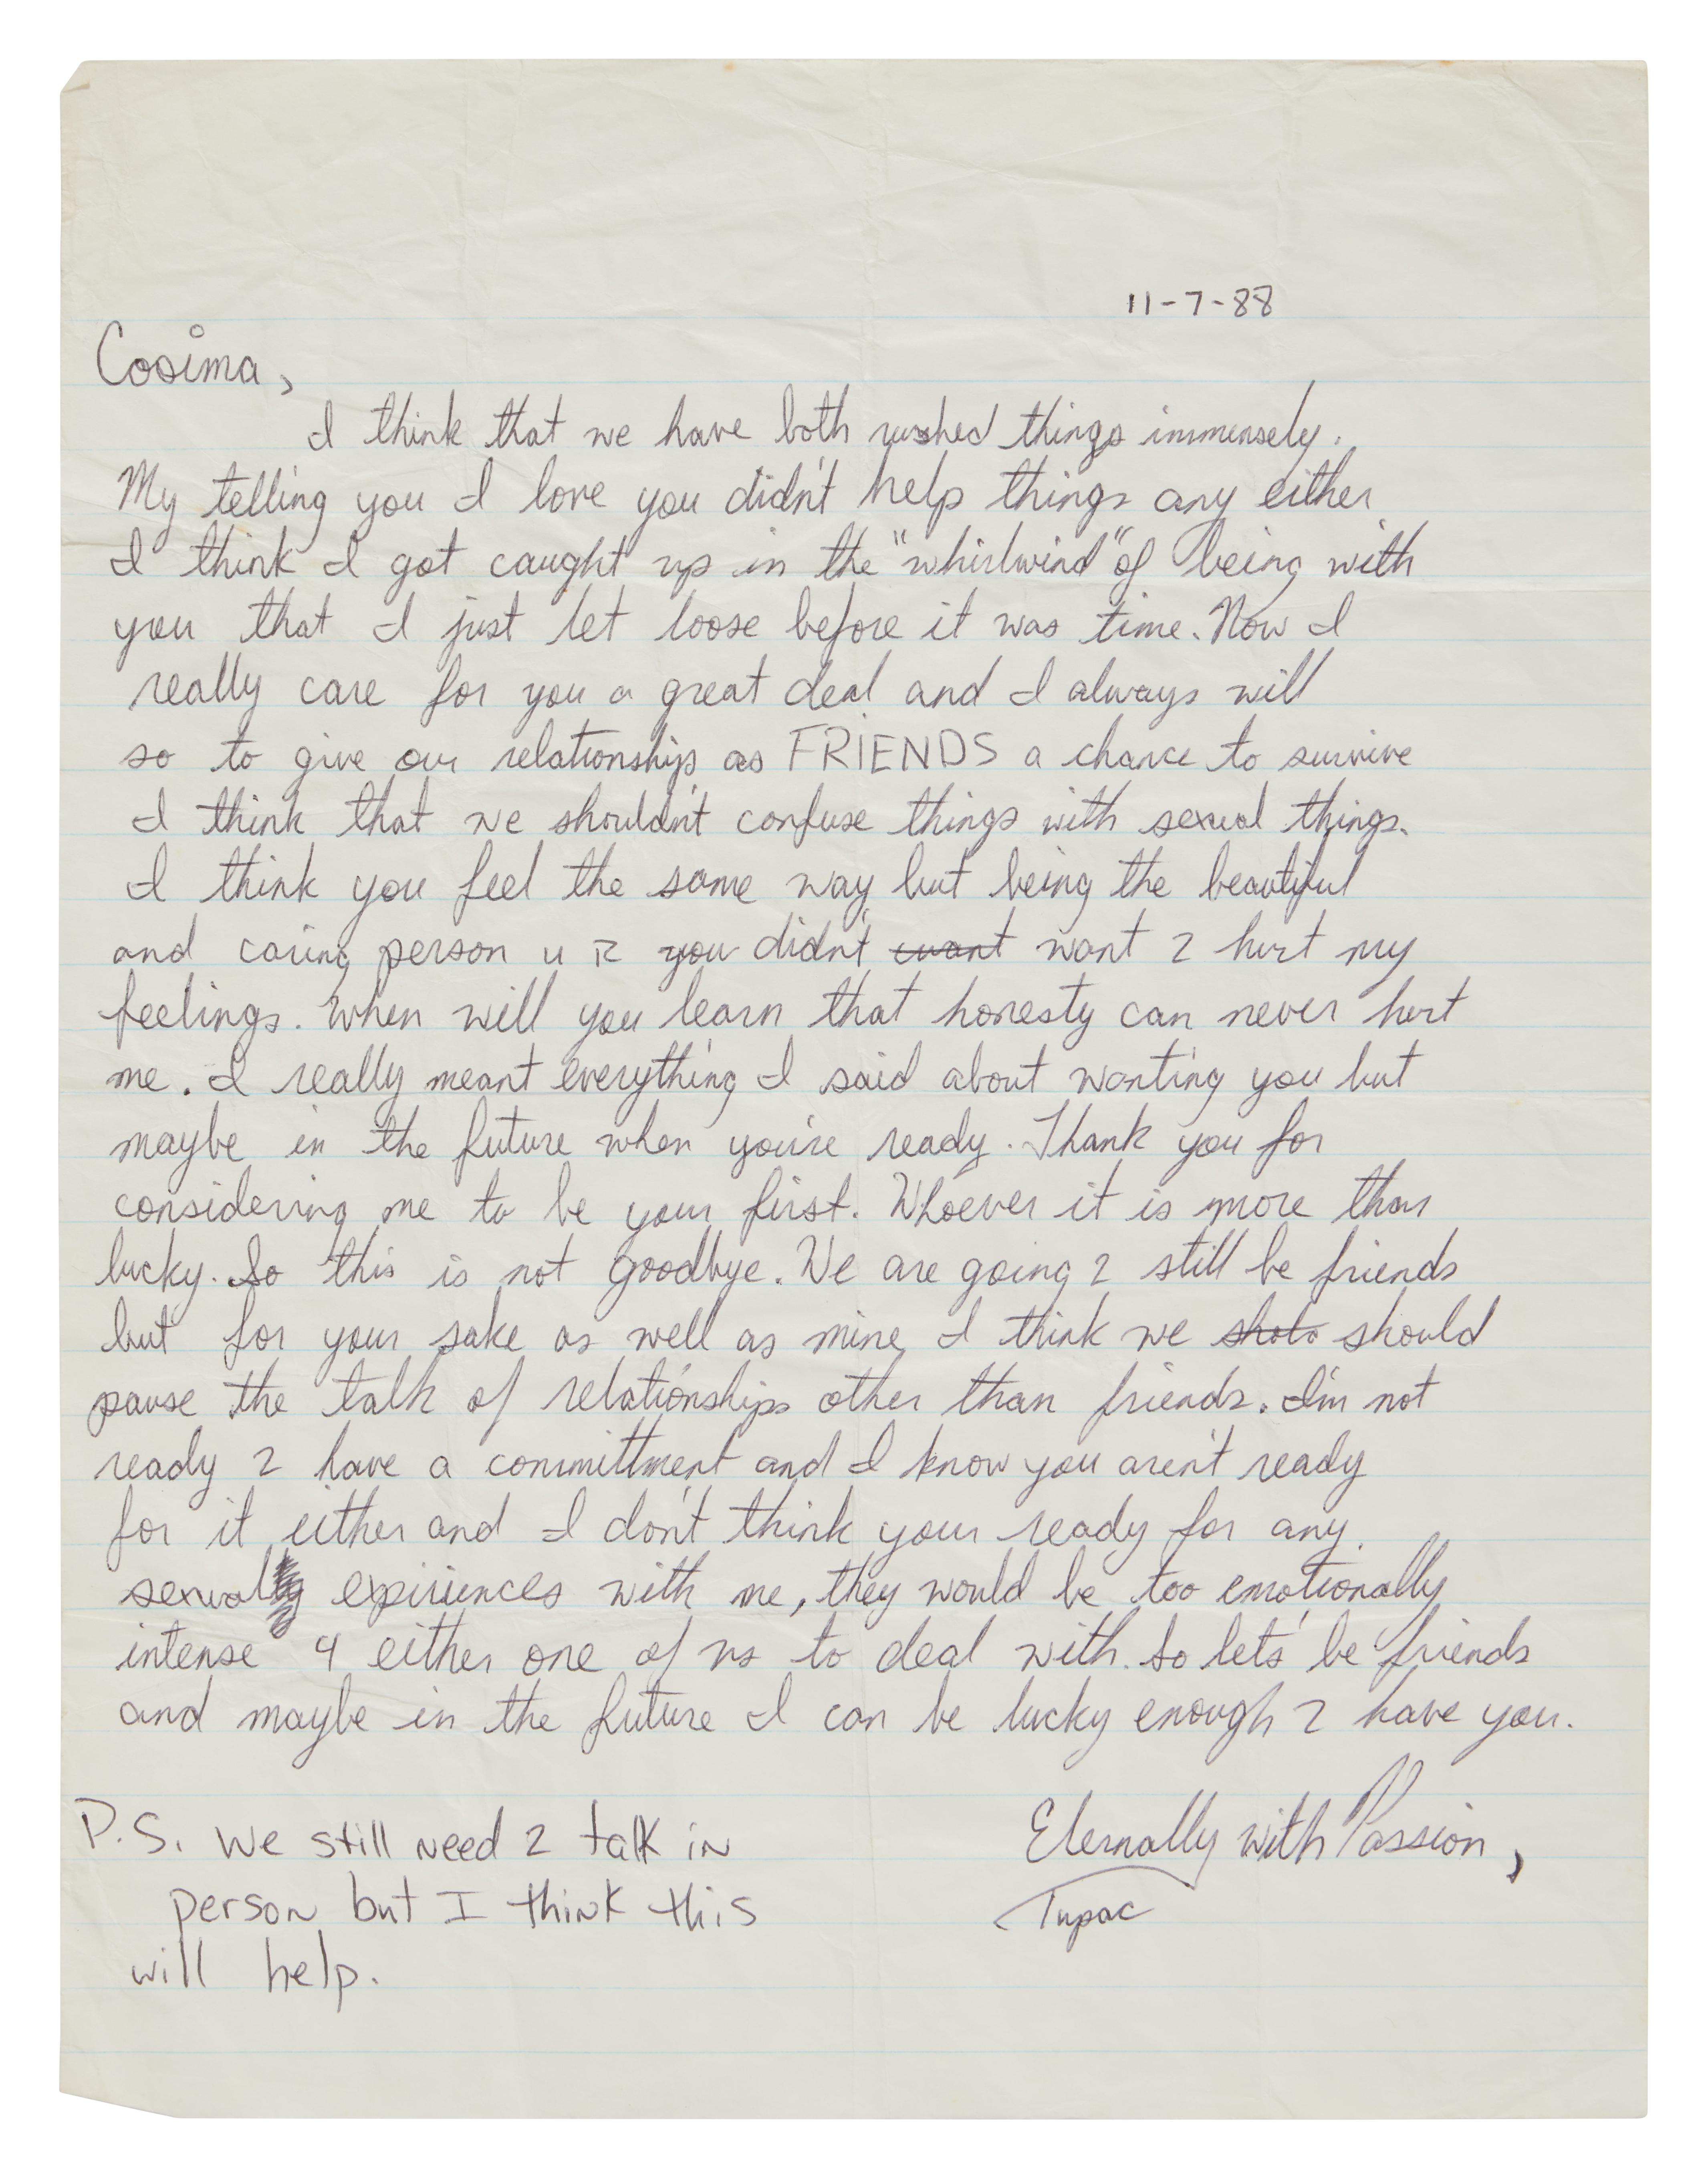 11-7-88
Cosima,
I think that we have both rushed things immensely.
My telling you I love you didn't help things any either
I think I got caught up in the "whirlwind" of being with
you that I just let loose before it was time. Now I
really care for you a great deal and I always will
so to give our relationship as FRIENDS a chance to survive
I think that we shouldn't confuse things with sexual things.
I think you feel the same way but being the beautiful
and caring person u R you didn't want want 2 hurt my
feelings. When will you learn that honesty can never hurt
me. I really meant everything I said about wanting you but
maybe in the future when you're ready. Thank you for
considering me to be your first. Whoever it is more than
lucky. So this is not goodbye. We are going 2 still be friends
but for your sake as well as mine I think we should
pause the talk of relationships other than friends. I'm not
ready 2 have a committment and I know you aren't ready
for it either and I don't think your ready for any
sexual expiriences with me, they would be too emotionally
intense 4 either one of us to deal with. So let's be friends
and maybe in the future I can be lucky enough 2 have you.
Eternally with Passion,
Tupac
P.S. We still need 2 talk in
person but I think this
will help.